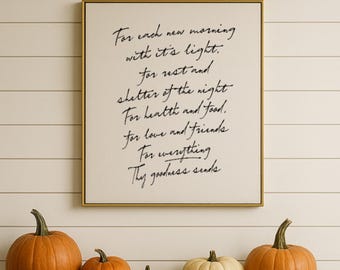 For each new morning
with it's light,
for rest and
shelter of the night
For health and food,
for love and friends
For everything
Thy goodness sends